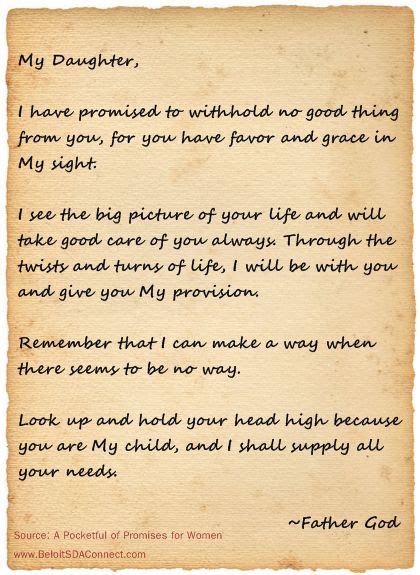 My Daughter,
I have promised to withhold no good thing
from you, for you have favor and grace in
My sight.
I see the big picture of your life and will
take good care of you always. Through the
twists and turns of life, I will be with you
and give you My provision.
Remember that I can make a way when
there seems to be no way.
Look up and hold your head high because
you are My child, and I shall supply all
your needs.
~Father God
Source: A Pocketful of Promises for Women
www.BeloitSDAConnect.com